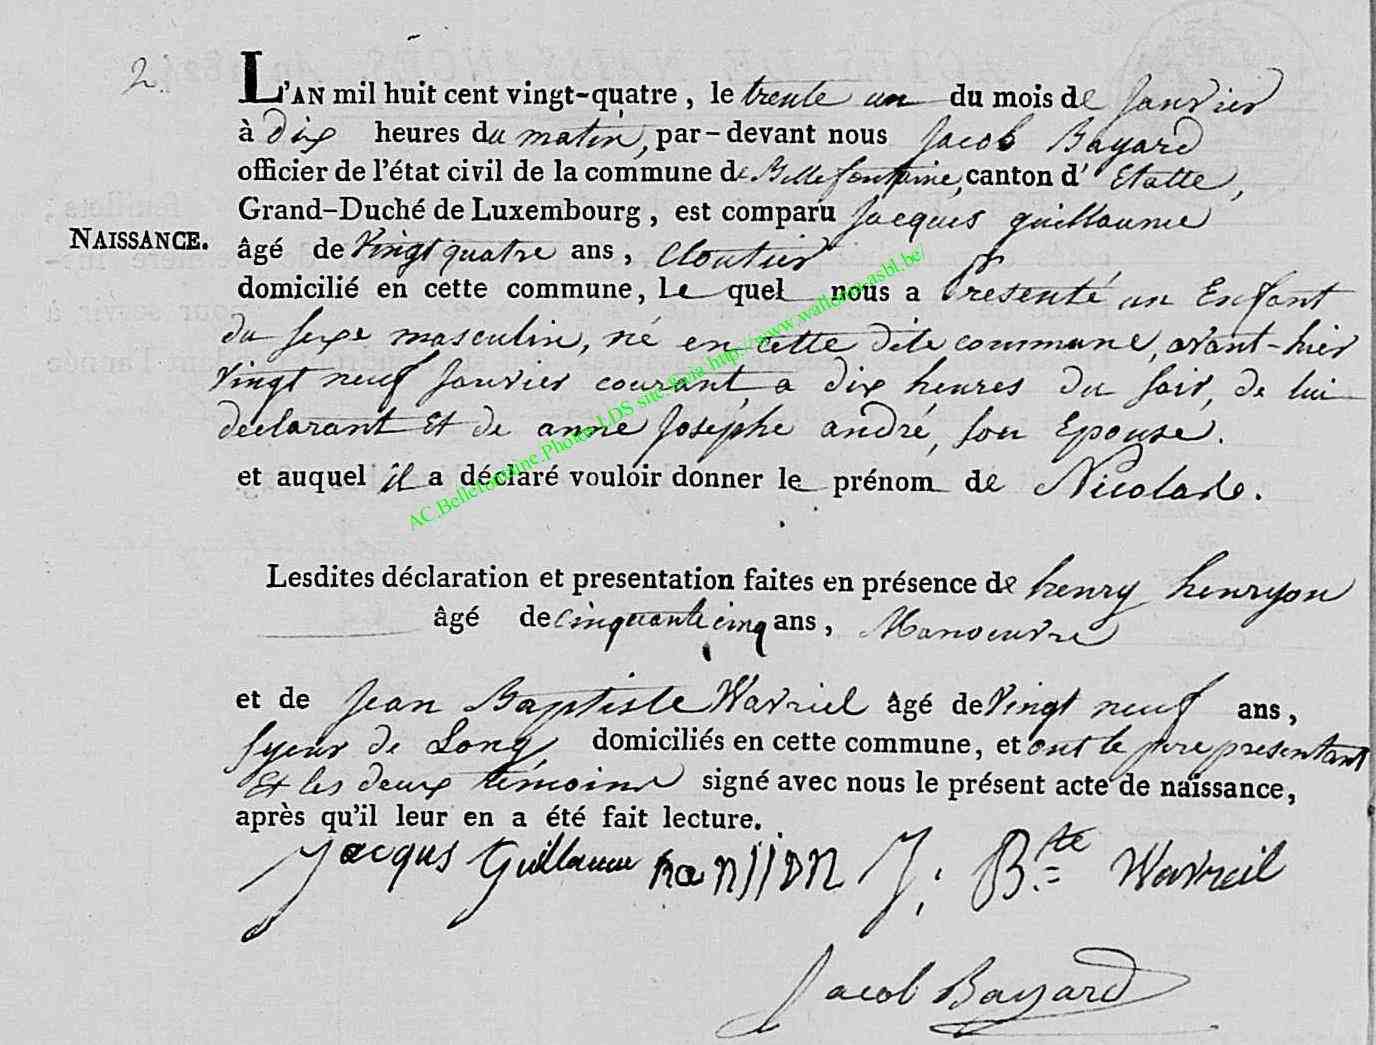 2.
L'AN mil huit cent vingt-quatre, le trente un du mois de Janvier
à dix heures du matin, par-devant nous Jacob Bayard
officier de l'état civil de la commune de Bellefontaine, canton d'Etalle,
Grand-Duché de Luxembourg, est comparu Jacques guillaume
NAISSANCE.
âgé de Vingt quatre ans, Cloutier
domicilié en cette commune, Le quel nous a présenté un Enfant
du sexe masculin, né en cette dite commune, avant-hier
Vingt neuf Janvier courant, a dix heures du soir, de lui
declarant Et de anne Joséphe andré, son Epouse.
et auquel il a déclaré vouloir donner le prénom de Nicolas.
AC.Bellefontaine.Photos LDS site Gaia http://www.wallonia-asbl.be/
Lesdites déclaration et presentation faites en présence de henry henryon
âgé de cinquante cinq ans, Manoeuvre
et de Jean Baptiste Wavriel âgé de Vingt neuf ans,
Syeur de Long domiciliés en cette commune, et ont le pere presentant
Et les deux témoins signé avec nous le présent acte de naissance,
après qu'il leur en a été fait lecture.
Jacques Guillaume J: B.te Wavreil
Jacob Bayard